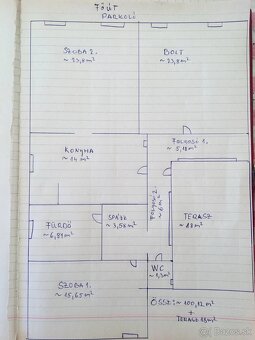 FŐÚT
PARKOLÓ
SZOBA 2.
~ 23,8 m²
BOLT
~ 23,8 m²
KONYHA
~ 14 m²
FOLYOSÓ 1.
~ 5,18 m²
FOLYOSÓ 2.
~ 6 m²
FÜRDŐ
~ 6,89 m²
SPÁJZ
~ 3,58 m²
TERASZ
~ 18 m²
SZOBA 1.
~ 15,65 m²
WC
~ 1,3 m²
ÖSSZ: ~ 100,12 m²
+
TERASZ 18 m²
bazar.sk